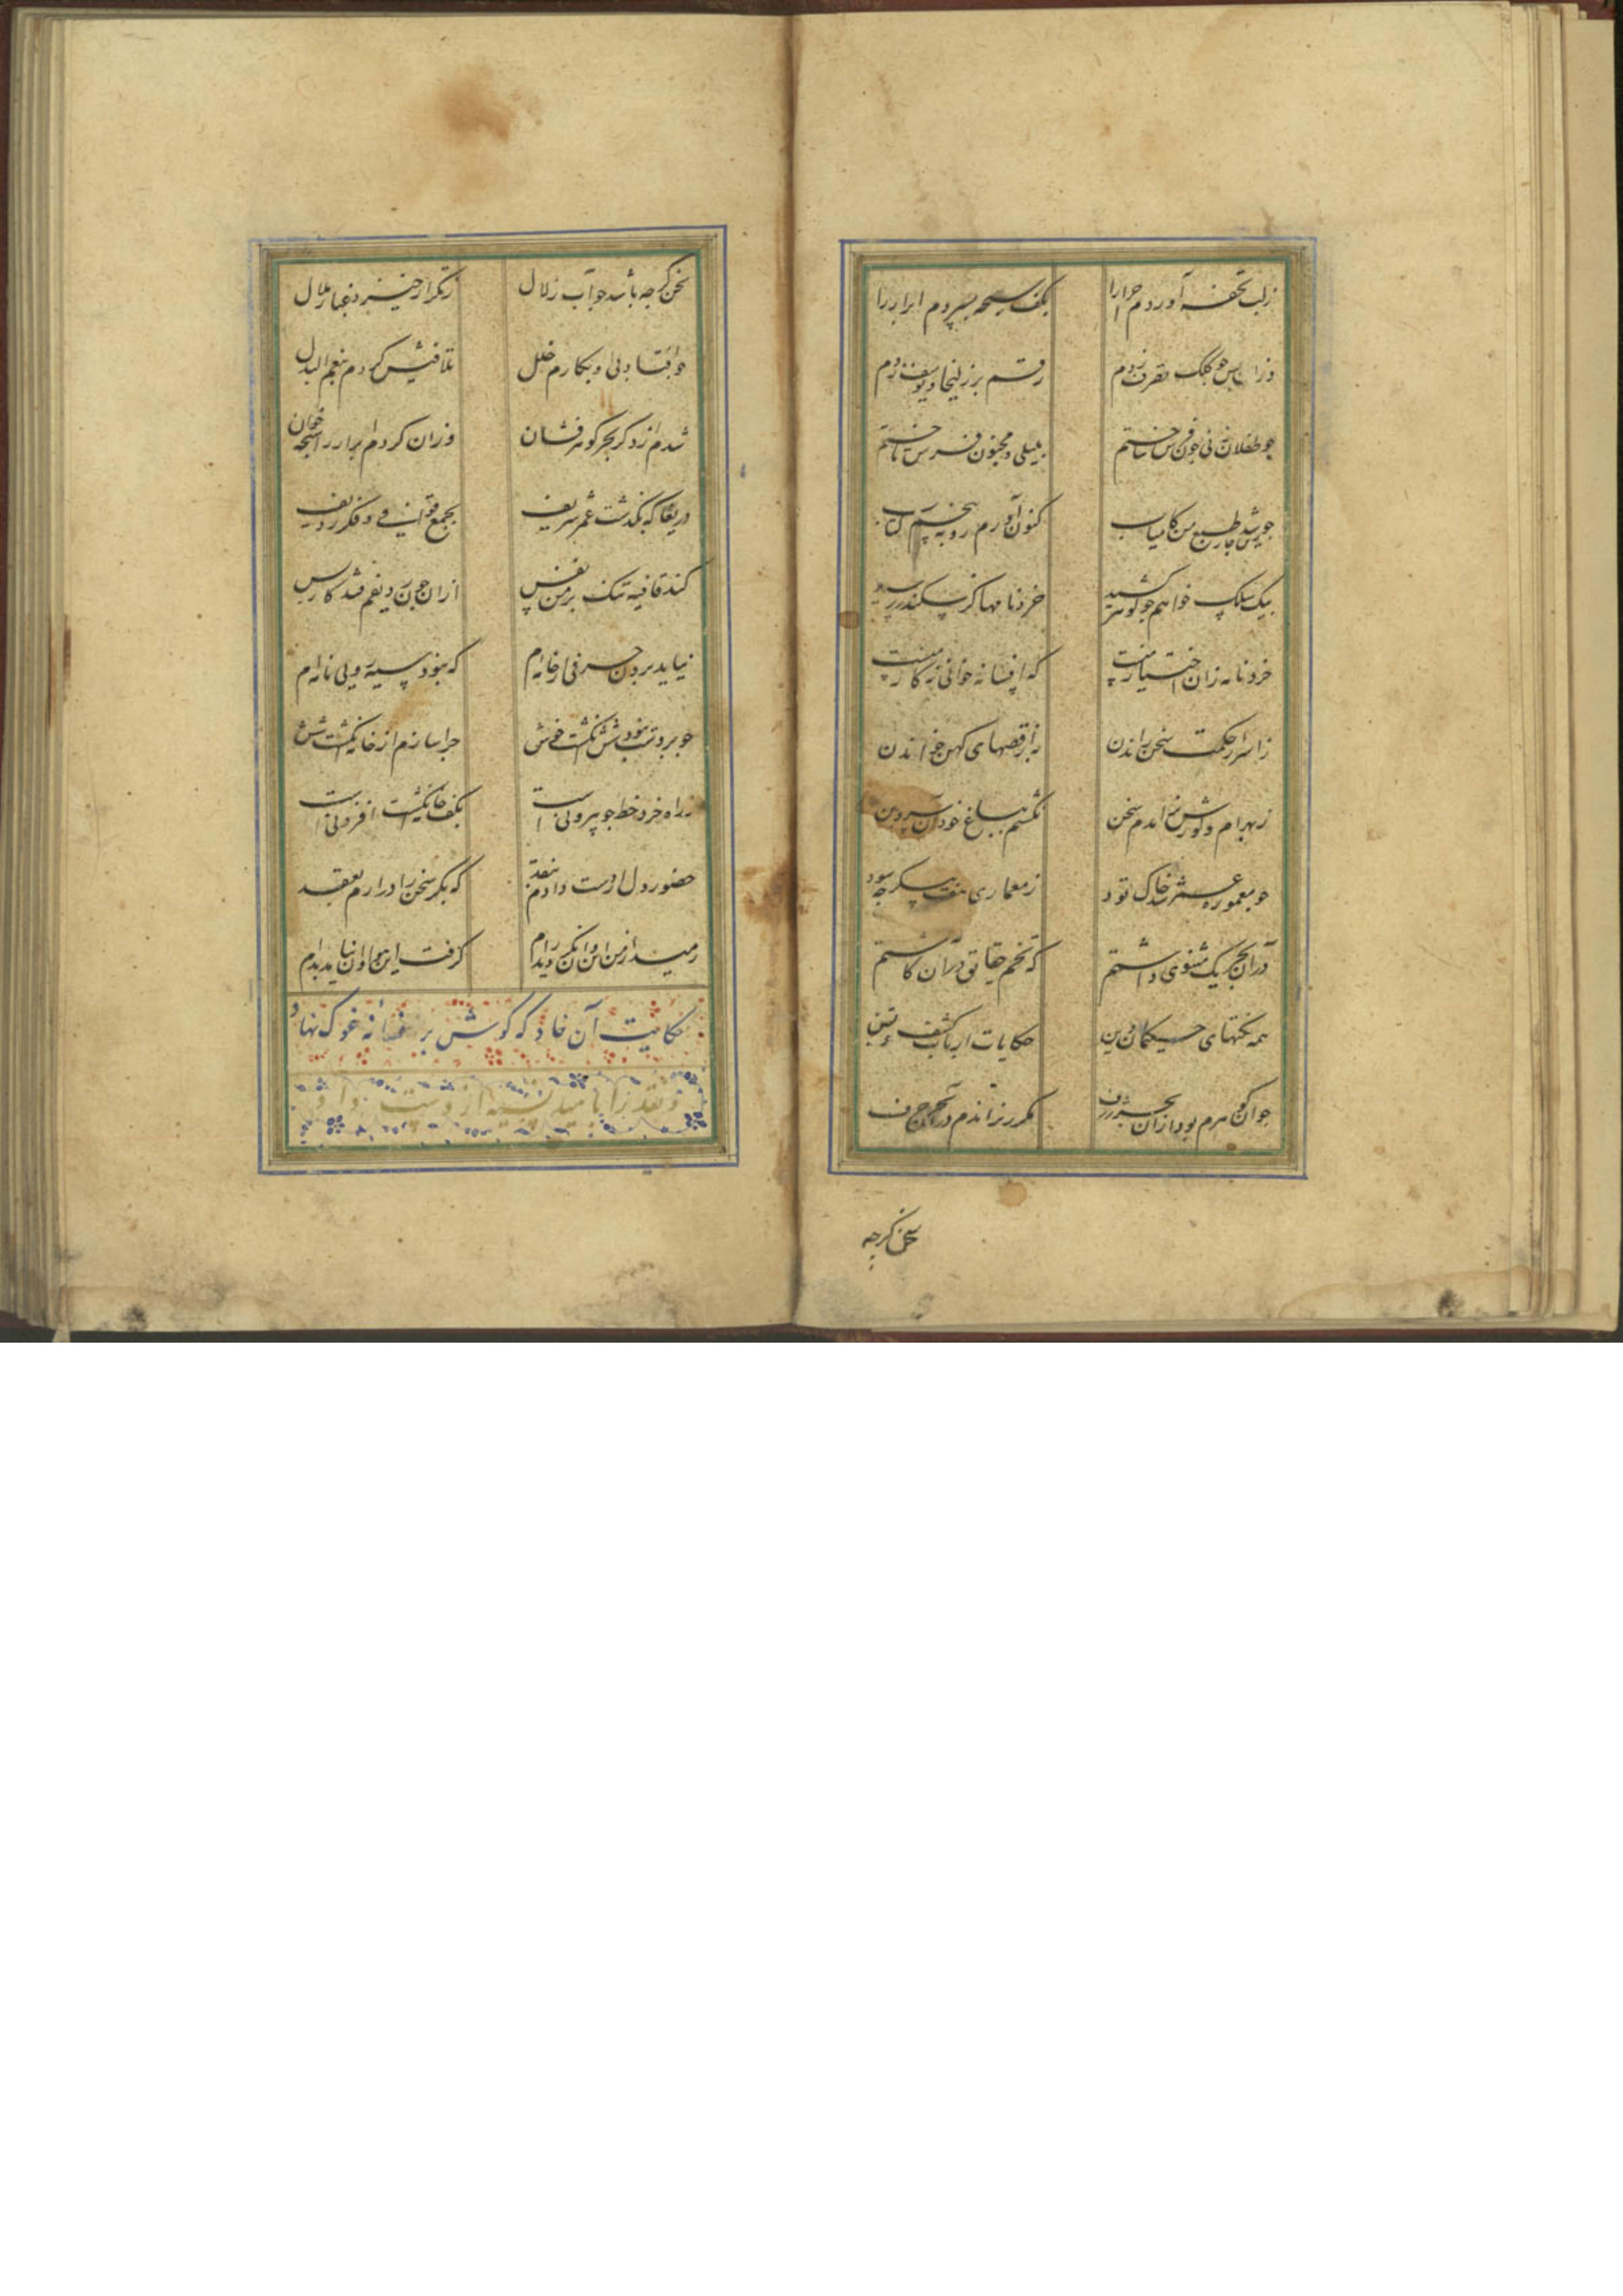 زلب تحفه آوردم احرار را بکف سبحه بسپردم ابرار را
وزان پس چو کلک تصرف زدم رقم بر زلیخا و یوسف زدم
چو طفلان ز نی چون فرس ساختم بلیلی و مجنون فرس تاختم
چو شد جارش طبع من کامیاب کنون آورم رو به پنجم کتاب
بیک سلک خواهم چو گوهر کشید خردنامها کز سکندر رسید
خردنامه زان اختیار منست که افسانه خوانی نه کار منست
ز اسرار حکمت سخن راندن به از قصهای کهن خواندن
ز بهرام و گورش نراندم سخن نگشتم بباغ خود آن سروبن
چو معموره عمر شد خاک تود ز معماری هفت پیکر چه سود
در آن بحر یک مثنوی داشتم که تخم حقایق در آن کاشتم
همه نکتهای حکیمان دین حکایات ارباب کشف و یقین
چو آن گوهرم بود ازان بحر ژرف مکرر نراندم در آن بحر حرف
سخن گرچه
سخن گرچه باشد چو آب زلال ز تکرار خیزد غبار ملال
چو افتاد ولی در بکارم خلل تلافیش کردم بنعم البدل
شدم از دگر بحر گوهرفشان وزان کردم ابرار را سبحه خوان
دریغا که بگذشت عمر شریف بجمع قوافی و فکر ردیف
کند قافیه تنگ بر من نفس ازان چون ردیفم فتد کار پس
نیاید برون حرفی از خامه‌ام که نبود سیه رویی نامه‌ام
چو برد تب بود شش انگشت خوش چرا سازم از خامه انگشت شش
ز راه خرد خط چو بیرونی است بکف خامه انگشت افزونی است
حضور دل از دست دادم بنقد که بکر سخن را در آرم بعقد
رمید از من این وان نگردید رام گرفت این هوا وان نیامد بدام
حکایت آن خاد که گوش بر فسانه غوک نهاد
و نقد را بامید نسیه از دست داد